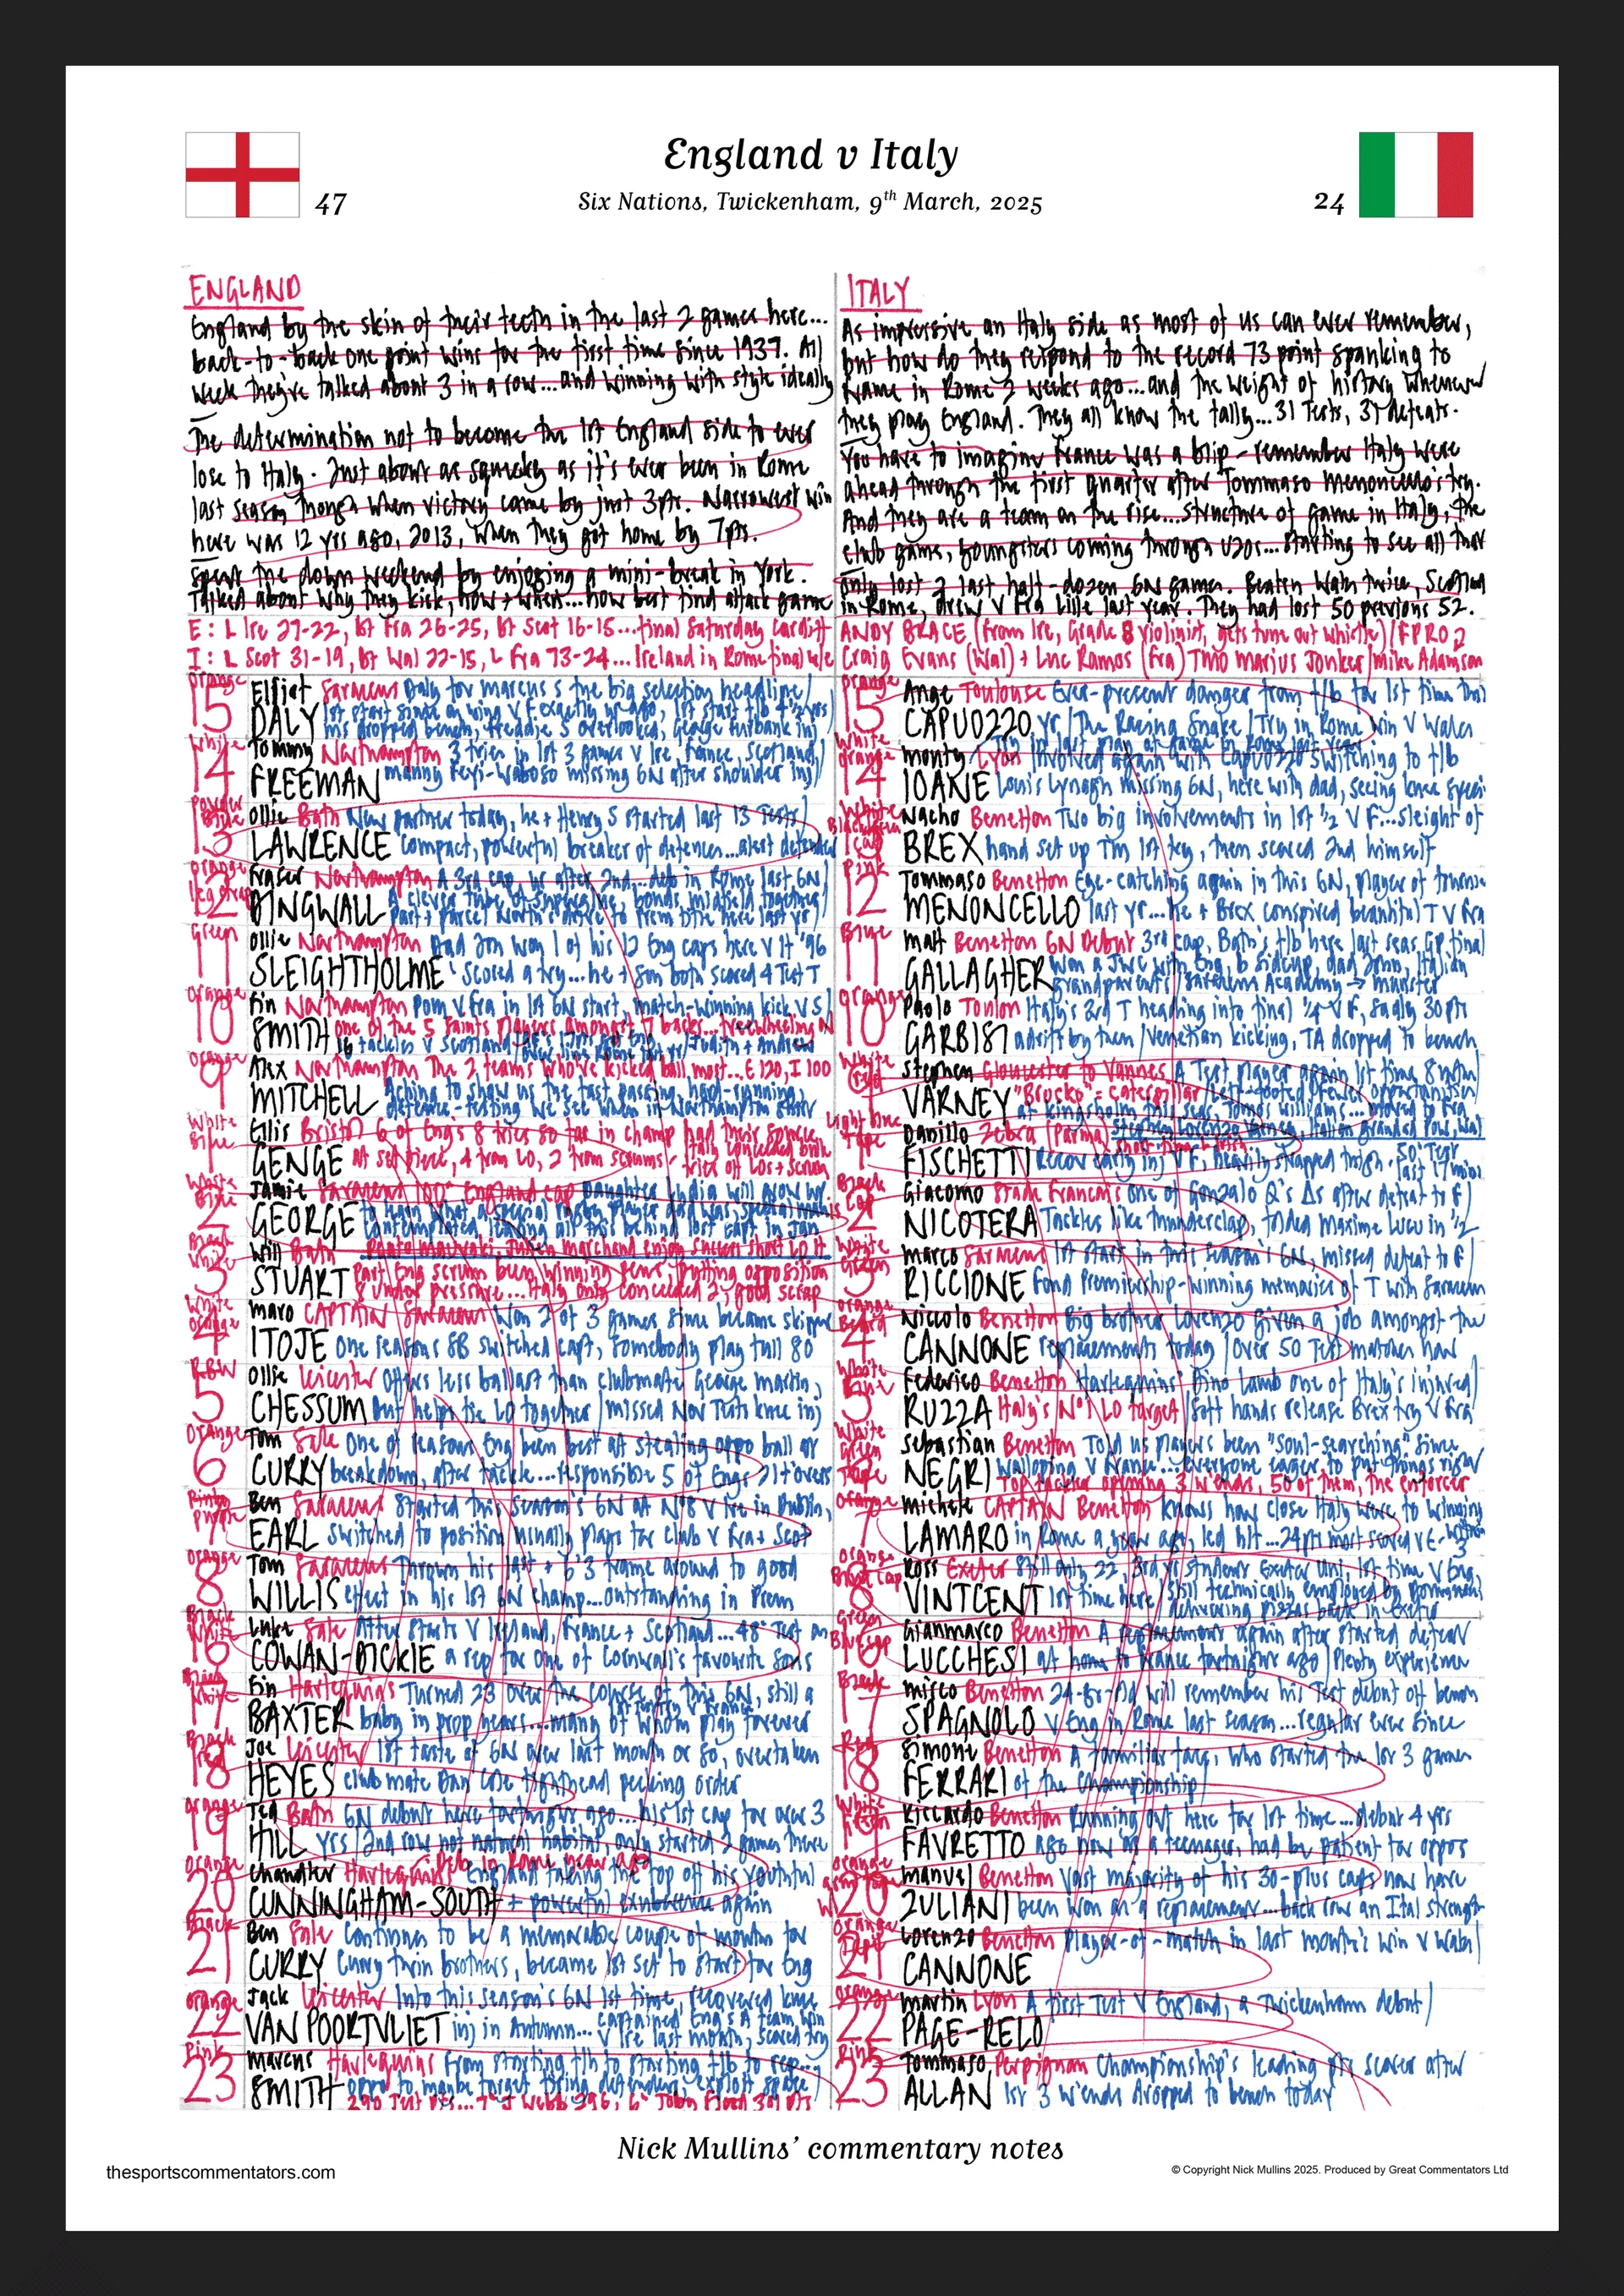 England v Italy
Six Nations, Twickenham, 9th March, 2025
47
24
ENGLAND
England by the skin of their teeth in the last 2 games here...
back-to-back one point wins for the first time since 1937. All
week they've talked about 3 in a row...and winning with style ideally
The determination not to become the 1st England side to ever
lose to Italy. Just about as squeaky as it's ever been in Rome
last season though when victory came by just 3pts. Narrowest win
here was 12 yrs ago, 2013, when they got home by 7pts.
Spent the down weekend by enjoying a mini-break in York.
Talked about why they kick, how + when...how best find attack game
E: L Ire 27-22, bt Fra 26-25, bt Scot 16-15...final Saturday Cardiff
I: L Scot 31-19, bt Wal 22-15, L Fra 73-24...Ireland in Rome final w/e
ITALY
As impressive an Italy side as most of us can ever remember,
but how do they respond to the record 73 point spanking to
France in Rome 2 weeks ago...and the weight of history whenever
they play England. They all know the tally...31 Tests, 31 defeats.
You have to imagine France was a blip - remember Italy were
ahead through the first quarter after Tommaso Menoncello's try.
And they are a team on the rise...structure of game in Italy, the
club game, youngsters coming through U20s...starting to see all that
only lost 2 last half-dozen 6N games. Beaten Wales twice, Scotland
in Rome, drew v Fra Lille last year. They had lost 50 previous 52.
ANDY BRACE (from Ire, Grade 8 violinist, gets tune out whistle) / FPRO 2
Craig Evans (Wal) + Luc Ramos (Fra) TMO Marius Jonker / Mike Adamson
Orange
15 Elliot DALY Saracens Daly for Marcus S the big selection headline/
White
14 Tommy FREEMAN Northampton 3 tries in 1st 3 games v Ire, France, Scotland/
Manny Feyi-Waboso missing 6N after shoulder inj/
Powder Blue
13 Ollie LAWRENCE Bath New partner today, he + Henry S started last 13 Tests/
compact, powerful breaker of defences...alert defender
Orange
12 Fraser DINGWALL Northampton A 3rd cap, yr after 2nd...deb in Rome last 6N/
Green
11 Ollie SLEIGHTHOLME Northampton Dad Jon won 1 of his 12 Eng caps here v It '96
Scored a try...he + son both scored 4 Test T
Orange
10 Fin SMITH Northampton Pom v Fra in 1st 6N start, match-winning kick v S/
Orange
9 Alex MITCHELL Northampton The 2 teams who've kicked ball most...E 120, I 100
Aching to show us the fast passing, hard-running,
defence-testing we see when in Northampton shirt
White Blue
1 Ellis GENGE Bristol 6 of Eng's 8 tries so far in champ had their source
at set piece, 4 from LO, 2 from scrums
White Blue
2 Jamie GEORGE Saracens 100th England cap
Black White
3 Will STUART Bath
Part Eng scrum been winning pens, putting opposition
under pressure...Italy only conceded 2, good scrap
White Orange
4 Maro ITOJE CAPTAIN Saracens Won 2 of 3 games since became skipper
One reasons SB switched capt, somebody play full 80
R B W
5 Ollie CHESSUM Leicester Offers less ballast than clubmate George Martin,
but helps the LO together / missed Nov Tests knee inj
Orange
6 Tom CURRY Sale One of reasons Eng been best at stealing oppo ball at
breakdown, after tackle...responsible 5 of Eng's 21 t'overs
7 Ben EARL Saracens Started this season's 6N at No8 v Ire in Dublin,
switched to position usually plays for club v Fra + Scot
Orange
8 Tom WILLIS Saracens Thrown his 18st + 6'3 frame around to good
effect in his 1st 6N champ...outstanding in Prem
Black White
16 Luke COWAN-DICKIE Sale After starts v Ireland, France + Scotland...48th Test on
a rep for one of Cornwall's favourite sons
17 Fin BAXTER Harlequins Turned 23 over the course of this 6N, still a
baby in prop years...many of whom play forever
Black
18 Joe HEYES Leicester 1st taste of 6N over last month or so, overtaken
club mate Dan Cole tighthead pecking order
Orange
19 Ted HILL Bath 6N debut here fortnight ago...his 1st cap for over 3
yrs / 2nd row not natural habitat, only started 2 games there
Orange
20 Chandler CUNNINGHAM-SOUTH Harlequins Deb in Rome year ago
England taking the top off his youthful
+ powerful exuberance again
Black
21 Ben CURRY Sale Continues to be a memorable couple of months for
Curry twin brothers, became 1st set to start for Eng
Orange
22 Jack VAN POORTVLIET Leicester Into this season's 6N 1st time, recovered knee
inj in Autumn...captained Eng's A team win
v Ire last month, scored try
Pink
23 Marcus SMITH Harlequins From starting f/h to starting f/b to rep...
oppo to maybe target tiring defenders, exploit space/
Orange
15 Ange CAPUOZZO Toulouse Ever-present danger from f/b for 1st time this
yr / The Racing Snake / Try in Rome win v Wales
White Orange
14 Monty IOANE Lyon Involved again with Capuozzo switching to f/b
Louis Lynagh missing 6N, here with dad, seeing knee
13 Nacho BREX Benetton Two big involvements in 1st 1/2 v F...sleight of
hand set up Tm 1st try, then scored 2nd himself
Pink
12 Tommaso MENONCELLO Benetton Eye-catching again in this 6N, player of tourna
last yr...he + Brex conspired beautiful T v Fra
Blue
11 Matt GALLAGHER Benetton 6N Debut 3rd cap, Bath's f/b here last seas GP final
Won a JWC with Eng, b Sidcup, dad John, Italian
grandparents / Saracens Academy → Munster
Orange
10 Paolo GARBISI Toulon Italy's 3rd T heading into final 1/4 v F, sadly 30 pts
adrift by then / Venetian kicking, TA dropped to bench
White
9 Stephen VARNEY Gloucester to Vannes A Test player again 1st time 8 mths/
"Brucko" = caterpillar
Light Blue Tape
1 Danilo FISCHETTI Zebre (Parma)
Black Cap
2 Giacomo NICOTERA Stade Francais One of Gonzalo Q's Δs after defeat to F/
Tackles like thunderclap, folded Maxime Lucu in 1/2
White Green
3 Marco RICCIONE Saracens 1st start in this season's 6N, missed defeat to F/
Fond Premiership-winning memories of T with Saracens
Orange Beard
4 Niccolo CANNONE Benetton Big brother Lorenzo given a job amongst the
replacements today / Over 50 Test matches now
White Blue
5 Federico RUZZA Benetton Harlequins' Dino Lamb one of Italy's injured/
Italy's No1 LO target / Soft hands release Brex try v Fra
White Green Tape
6 Sebastian NEGRI Benetton Told us players been "soul-searching" since
walloping v France...everyone eager to put things right
Top tackler opening 3 w'ends, 50 of them, the enforcer
Orange
7 Michele LAMARO CAPTAIN Benetton Knows how close Italy were to winning
in Rome a year ago, led h/t...24pts most scored v E
Orange
8 Ross VINTCENT Exeter Still only 22, 3rd yr student Exeter Uni, 1st time v Eng,
1st time here / Still technically employed by Dominoes,
delivering pizzas back in Exeter
Green Blue Cap
16 Gianmarco LUCCHESI Benetton A replacement again after started defeat
at home to France fortnight ago / Plenty experience
Black
17 Mirco SPAGNOLO Benetton 24-yr-old will remember his Test debut off bench
v Eng in Rome last season...regular ever since
Red
18 Simone FERRARI Benetton A familiar face, who started the 1st 3 games
of the Championship/
White Green
19 Riccardo FAVRETTO Benetton Running out here for 1st time...debut 4 yrs
ago now as a teenager, had be patient for oppos
Orange
20 Manuel ZULIANI Benetton Vast majority of his 30-plus caps now have
been won as a replacement...back row an Ital strength
Orange
21 Lorenzo CANNONE Benetton Player-of-match in last month's win v Wales/
Orange
22 Martin PAGE-RELO Lyon A first Test v England, a Twickenham debut/
Pink
23 Tommaso ALLAN Perpignan Championship's leading pts scorer after
1st 3 w'ends dropped to bench today
Nick Mullins' commentary notes
thesportscommentators.com
© Copyright Nick Mullins 2025. Produced by Great Commentators Ltd